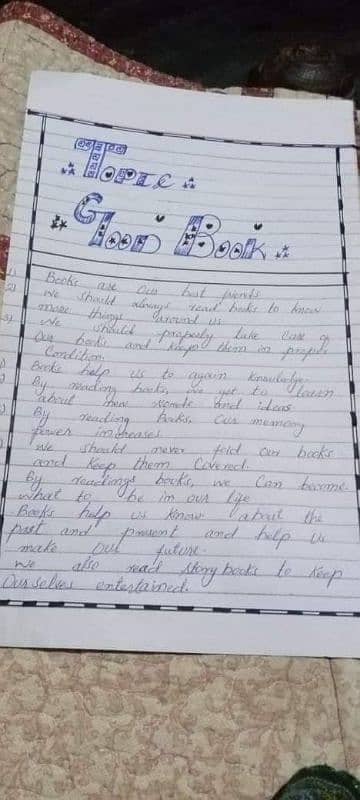 Topic
Good Book
1) Books are Our best friends.
2) We should always read books to know
more things around us
3) We should properly take care of
Our books and keep them in proper
Condition.
Books help us to again knowledge.
By reading books, we get to learn
about new words and ideas
By reading books, Our memory
power increases.
We should never fold our books
and keep them Covered.
By readings books, we Can become
what to be in our life
Books help us know about the
past and present and help us
make Our future.
We also read Story books to keep
Ourselves entertained.